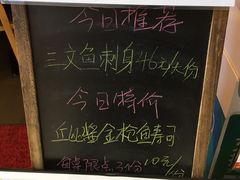 今日推荐
三文鱼刺身46元/大份
今日特价
金枪鱼寿司
每桌限点3份 10元/份